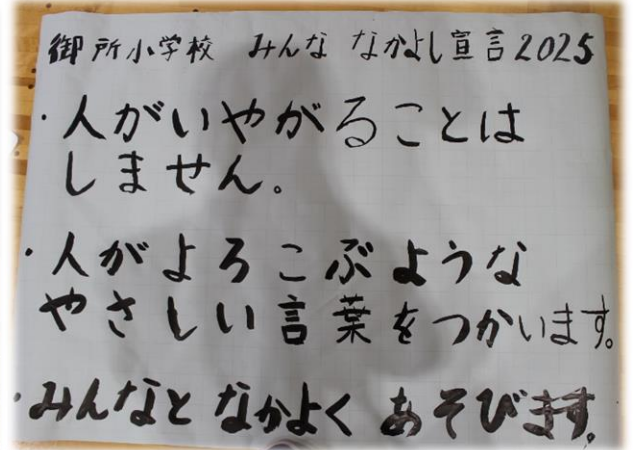 御所小学校 みんな なかよし宣言2025
・人がいやがることは
しません。
・人がよろこぶような
やさしい言葉をつかいます。
・みんなと なかよく あそびます。